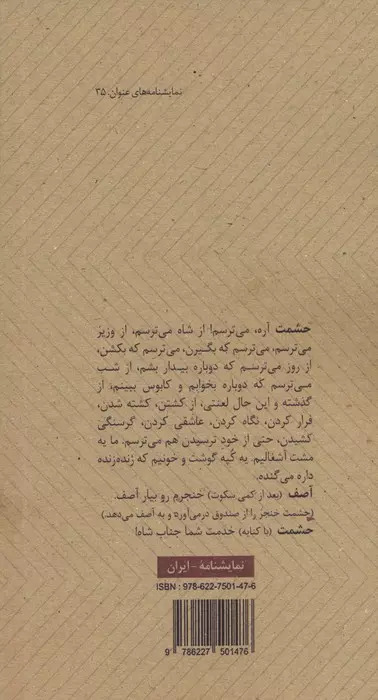 نمایشنامه‌های عنوان: ۳۵
حشمت آره، می‌ترسم! از شاه می‌ترسم، از وزیر
می‌ترسم، می‌ترسم که بگیرن، می‌ترسم که بکشن،
از روز می‌ترسم که دوباره بیدار بشم، از شب
می‌ترسم که دوباره بخوابم و کابوس ببینم، از
گذشته و این حال لعنتی، از کشتن، کشته شدن،
فرار کردن، نگاه کردن، عاشقی کردن، گرسنگی
کشیدن، حتی از خود ترسیدن هم می‌ترسم. ما یه
مشت آشغالیم. یه کُپه گوشت و خونیم که زنده‌زنده
داره می‌گنده.
آصف (بعد از کمی سکوت) خنجرم رو بیار آصف.
(حشمت خنجر را از صندوق درمی‌آورد و به آصف می‌دهد.)
حشمت (با کنایه) خدمت شما جناب شاه!
نمایشنامهٔ - ایران
ISBN : 978-622-7501-47-6
9 786227 501476